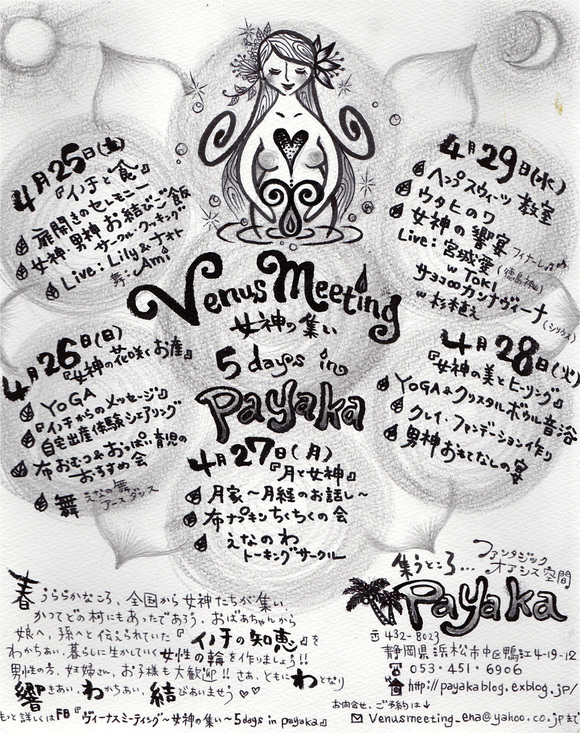 Venus Meeting
女神の集い
5 days in
Payaka
4月25日(土)
『イノチと食』
扉開きのセレモニー
女神・男神お結びご飯
サークル・クッキング
Live: Lily&ナオト
舞: Ami
4月26日(日)
『女神の花咲くお産』
YoGA
『イノチからのメッセージ』
自宅出産体験シェアリング
布おむつ&おっぱい育児の
おすすめ会
舞 えなの舞
アースダンス
4月27日(月)
『月と女神』
月家～月経のお話し～
布ナプキンちくちくの会
えなのわ
トーキングサークル
4月28日(火)
『女神の美とヒーリング』
YoGA&クリスタルボウル音浴
クレイ・ファンデーション作り
男神おもてなしの宴
4月29日(水)
ヘンプスウィーツ教室
ウタヒのワ
女神の響宴 フィナーレ♪
Live: 宮城愛(徳島)
w Toki
サヨコ∞カンナヴィーナ
(シリウス)
w 杉植え
春うららかなころ、全国から女神たちが集い、
かつてどの村にもあったであろう、おばあちゃんから
娘へ、孫へと伝えられていた『イノチの知恵』を
わかちあい、暮らしに生かしていく女性の輪を作りましょう!!
男性の方、妊婦さん、お子様も大歓迎!! さあ、ともにわとなり
響きあい、わかちあい、結びあいませう♡♡
もっと詳しくはFB『ヴィーナスミーティング～女神の集い～5days in payaka』
集うところ… ファンタジック
オアシス空間
Payaka
〒432-8023
静岡県浜松市中区鴨江4-19-12
053・451・6906
http://payakablog.exblog.jp/
お問合せ、ご予約は↓
Venusmeeting_ena@yahoo.co.jpまで